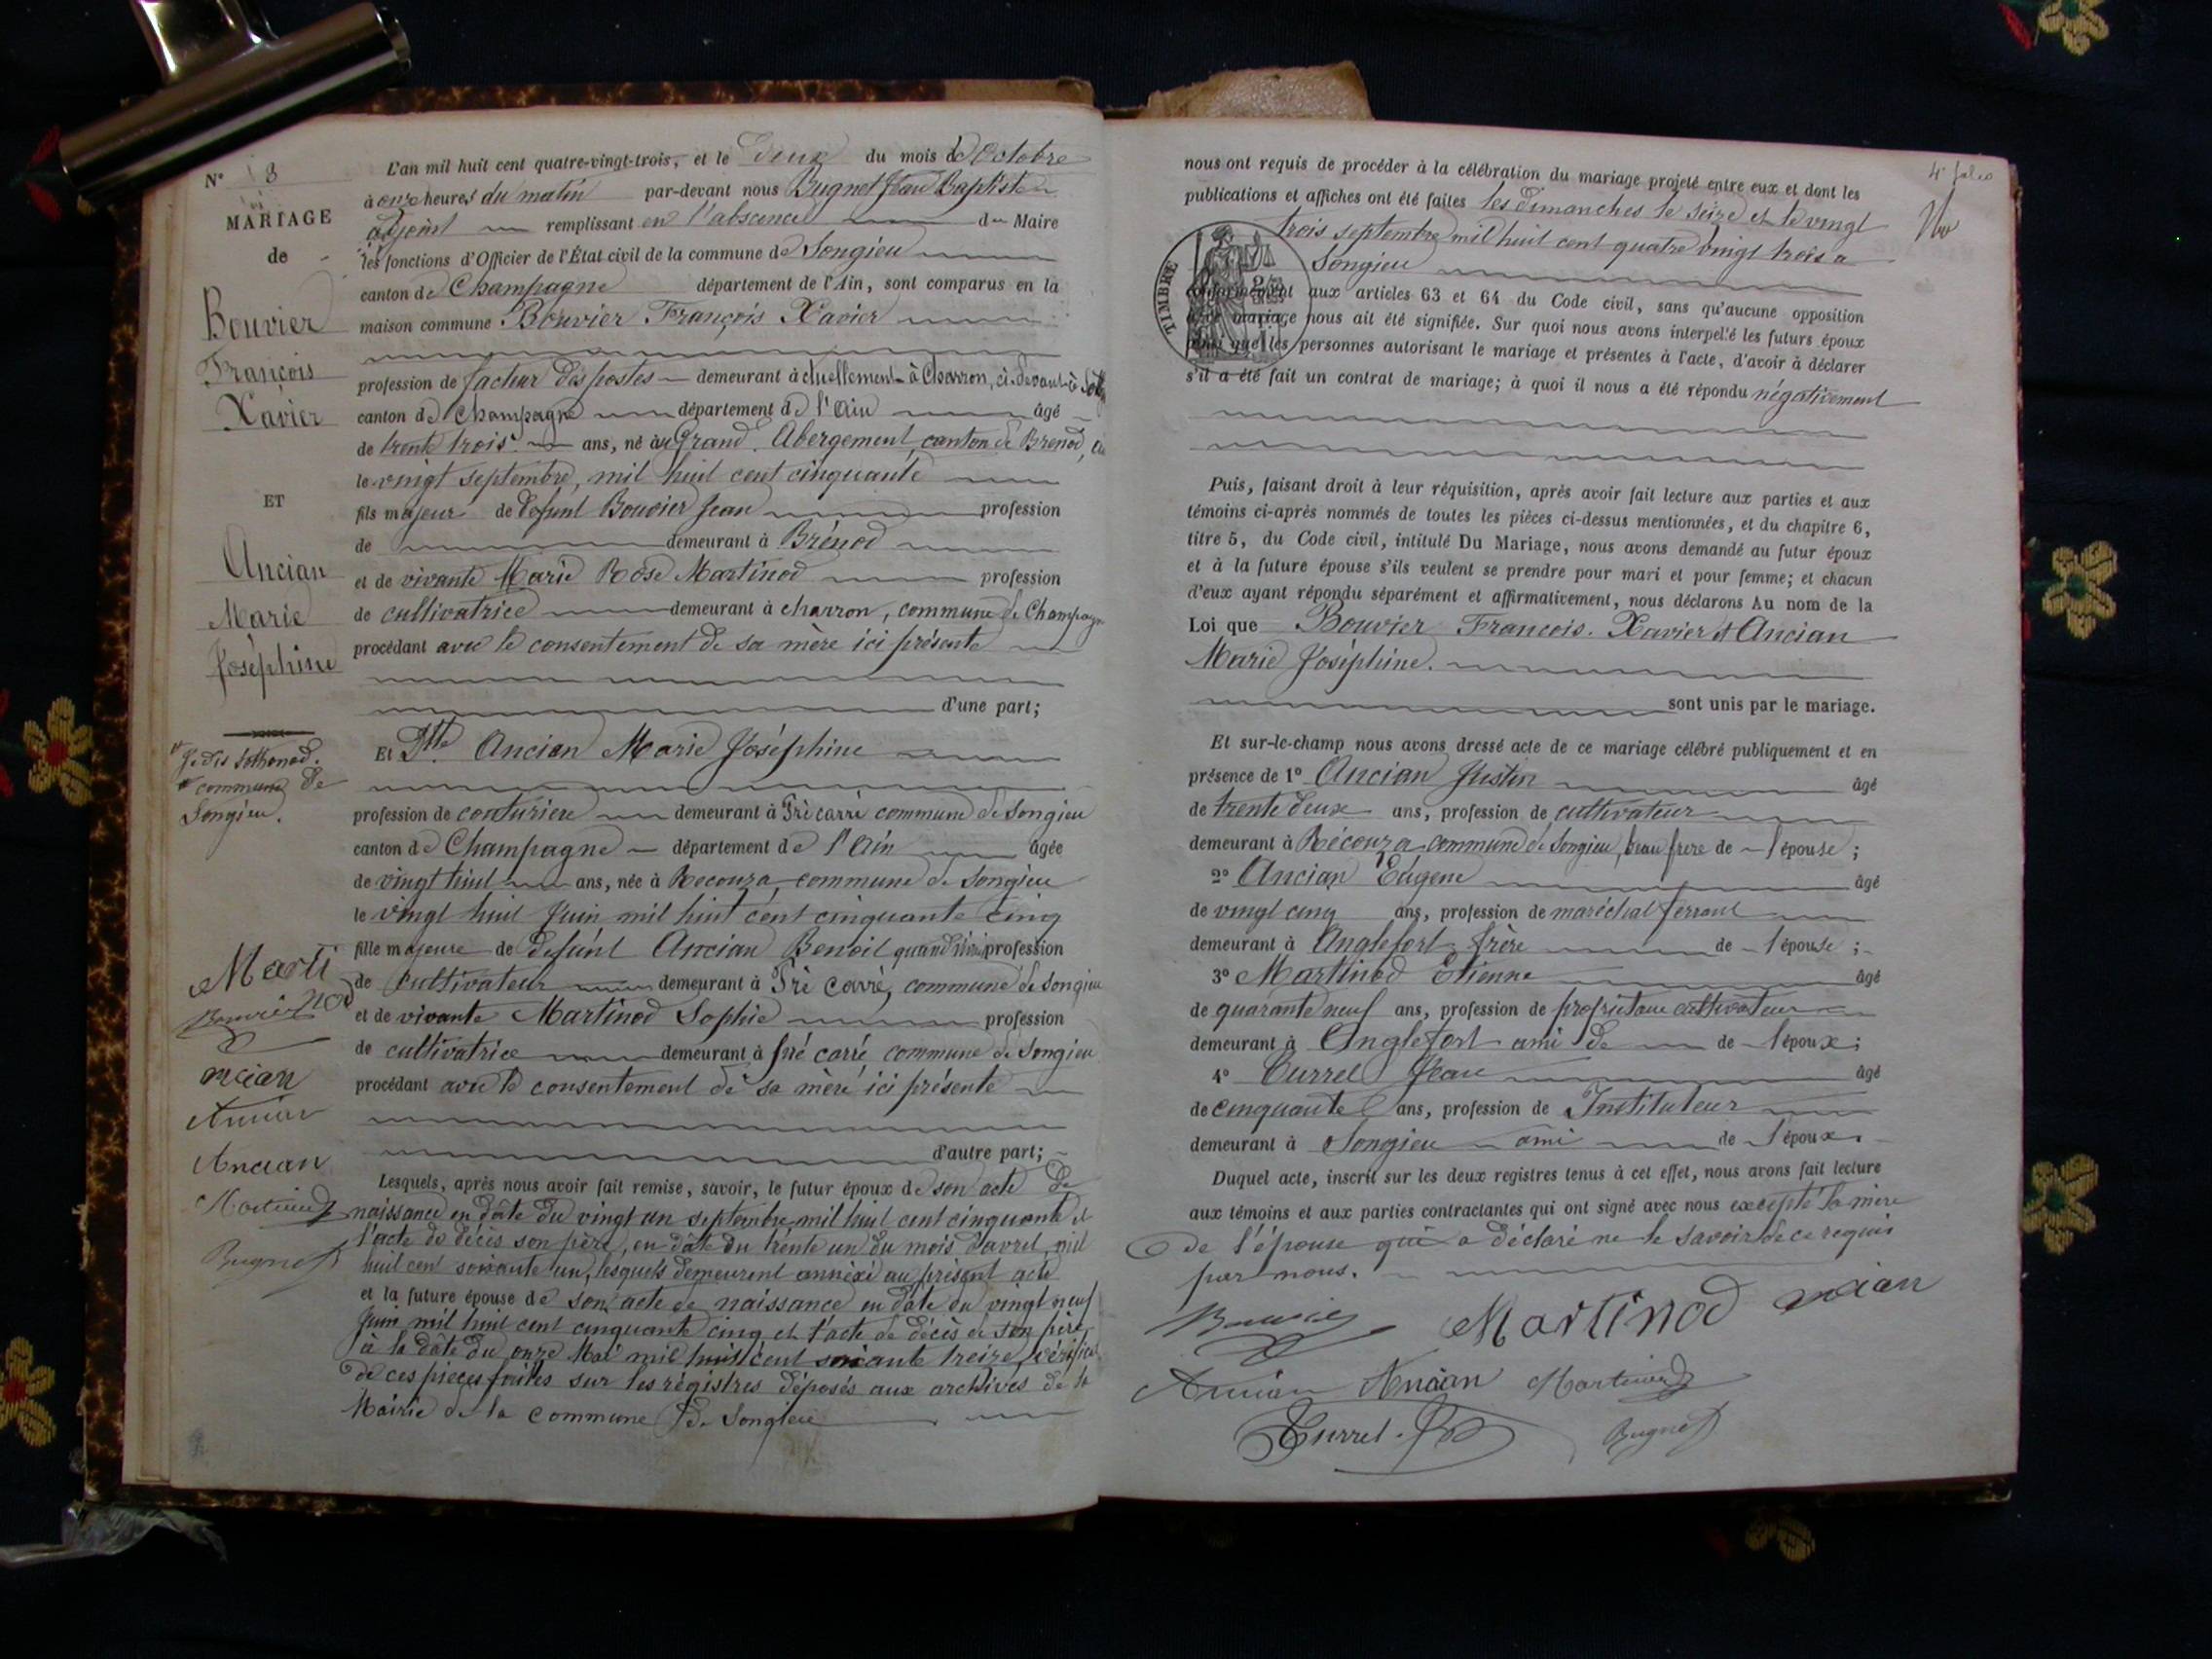 N° 8
MARIAGE
de
Bouvier
François
Xavier
ET
Ancian
Marie
Joséphine
Je dis Sothonod.
commune de
Songieu.
Marti
nod
Bouvier
ncian
Ancian
Ancian
Martinod
Bugnet
L'an mil huit cent quatre-vingt-trois, et le deux du mois d'Octobre
à onze heures du matin par-devant nous Bugnet Jean Baptiste
adjoint remplissant en l'absence du Maire
les fonctions d'Officier de l'État civil de la commune de Songieu
canton de Champagne département de l'Ain, sont comparus en la
maison commune Bouvier François Xavier
profession de facteur des postes demeurant actuellement à Charron, ci-devant à
canton de Champagne département de l'Ain âgé
de trente trois ans, né au Grand Abergement, canton de Brenod,
le vingt septembre, mil huit cent cinquante
fils majeur de défunt Bouvier Jean profession
de demeurant à Brénod
et de vivante Marie Rose Martinod profession
de cultivatrice demeurant à charron, commune de Champagne
procédant avec le consentement de sa mère ici présente
d'une part;
Et Dlle Ancian Marie Joséphine
profession de couturiere demeurant à Pré carré commune de Songieu
canton de Champagne département de l'Ain âgée
de vingt huit ans, née à Recouza, commune de Songieu
le vingt huit Juin mil huit cent cinquante cinq
fille majeure de défunt Ancian Benoit quand vivait profession
de Cultivateur demeurant à Pré Carré, commune de Songieu
et de vivante Martinod Sophie profession
de cultivatrice demeurant à pré carré commune de Songieu
procédant avec le consentement de sa mère ici présente
d'autre part;
Lesquels, après nous avoir fait remise, savoir, le futur époux de son acte de
naissance en dâte du vingt un septembre mil huit cent cinquante et
l'acte de décès son père, en dâte du trente un du mois d'avril mil
huit cent soixante un, lesquels demeurent annexé au présent acte
et la future épouse de son acte de naissance en dâte du vingt neuf
Juin mil huit cent cinquante cinq et l'acte de décès de son père
à la dâte du onze Mai mil huit cent soixante treize,
de ces pieces faites sur les régistres déposés aux archives de la
Mairie de la commune de Songieu
4e folio
nous ont requis de procéder à la célébration du mariage projeté entre eux et dont les
publications et affiches ont été faites les dimanches le seize et le vingt
trois septembre mil huit cent quatre vingt trois a
Songieu
TIMBRE
conformément aux articles 63 et 64 du Code civil, sans qu'aucune opposition
à ce mariage nous ait été signifiée. Sur quoi nous avons interpellé les futurs époux
ainsi que les personnes autorisant le mariage et présentes à l'acte, d'avoir à déclarer
s'il a été fait un contrat de mariage; à quoi il nous a été répondu négativement
Puis, faisant droit à leur réquisition, après avoir fait lecture aux parties et aux
témoins ci-après nommés de toutes les pièces ci-dessus mentionnées, et du chapitre 6,
titre 5, du Code civil, intitulé Du Mariage, nous avons demandé au futur époux
et à la future épouse s'ils veulent se prendre pour mari et pour femme; et chacun
d'eux ayant répondu séparément et affirmativement, nous déclarons Au nom de la
Loi que Bouvier Francois. Xavier et Ancian
Marie Joséphine.
sont unis par le mariage.
Et sur-le-champ nous avons dressé acte de ce mariage célébré publiquement et en
présence de 1° Ancian Justin âgé
de trente deux ans, profession de cultivateur
demeurant à Récouza commune de Songieu, beau frere de l'épouse;
2° Ancian Eugene âgé
de vingt cinq ans, profession de maréchal ferrant
demeurant à Anglefort frère de l'épouse;
3° Martinod Etienne âgé
de quarante neuf ans, profession de propriétaire cultivateur
demeurant à Anglefort ami de de l'époux;
4° Turrel Jean âgé
de cinquante ans, profession de Instituteur
demeurant à Songieu ami de l'époux.
Duquel acte, inscrit sur les deux registres tenus à cet effet, nous avons fait lecture
aux témoins et aux parties contractantes qui ont signé avec nous excepté la mère
de l'épouse qui a déclaré ne le savoir de ce requis
par nous.
Bouvier Martinod ncian
Ancian Ancian Martinod
Turrel Bugnet